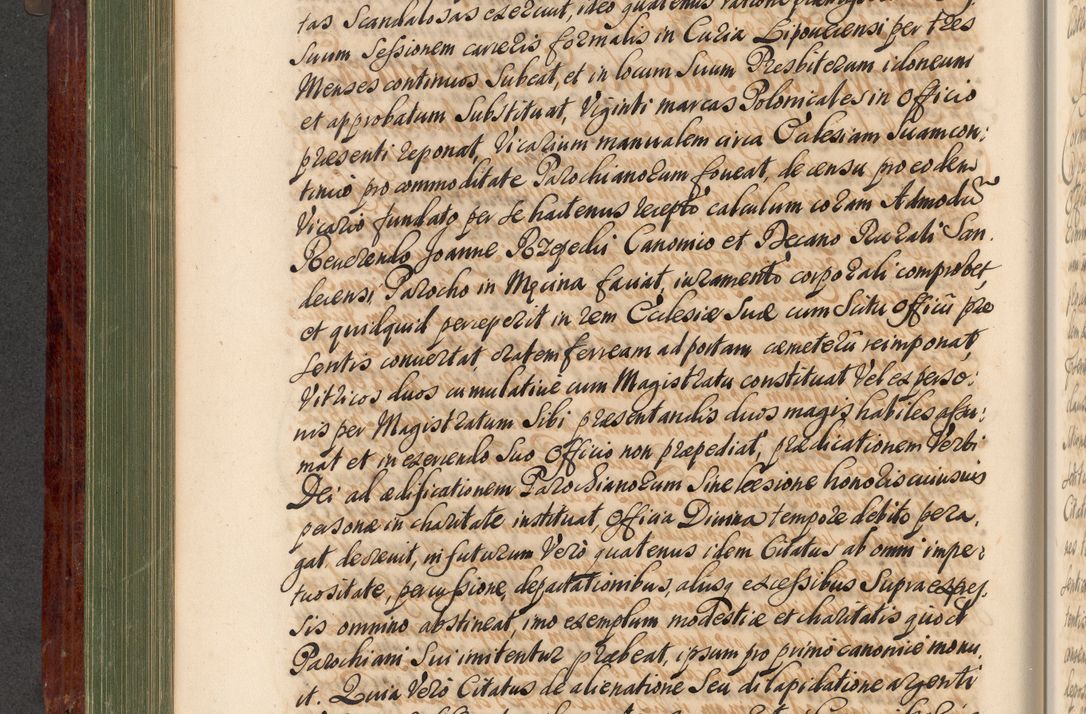 tas Scandalosas exercuit, ideo quatenus ratione
Suum Sessionem carceris formalis in Curia Lipoviecensi per tres
Menses continuos Subeat, et in locum Suum Presbiterum idoneum
et approbatum Substituat, Viginti marcas Polonicales in Officio
præsenti reponat, Vicarium manualem circa Ecclesiam Suam con:
tinuo pro commoditate Parochianorum foveat, de censu pro eodem
Vicario fundato per se hactenus recepto calculum coram Admodũ
Reverendo Joanne Rzepedii Canonico et Decano Rurali San,
decensi Parocho in Mecina faciat, iuramento corporali comprobet,
et quidquid perceperit in rem Ecclesiæ Suæ cum Scitu Officii præ
sentis convertat, cratem ferream ad portam cæmeterii reimponat,
Vitricos duos cumulative cum Magistratu constituat Vel ex perso:
nis per Magistratum Sibi præsentandis duos magis habiles assu:
mat et in exercendo Suo Officio non præpediat, prædicationem Verbi
Dei ad ædificationem Parochianorum Sine læsione honoris cuiusvis
personæ in charitate instituat, Officia Divina tempore debito pera,
gat, decrevit, in futurum Vero quatenus idem Citatus ab omni impe:
tuositate, percussione, depactationibus, alijsq excessibus Supra expres,
sis omnino abstineat, imo exemplum modestiæ et charitatis quod
Parochiani Sui imitentur præbeat, ipsum pro primo canonice monu,
it. Quia Vero Citatus de alienatione Seu dilapidatione argenti